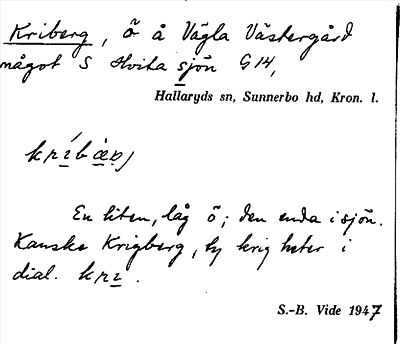 Kriberg, ö å Vägla Västergård
något S Hvita sjön G 14,
Hallaryds sn, Sunnerbo hd, Kron. l.
En liten, låg ö; den enda i sjön.
Kanske Krigberg, ty krig heter i
dial. krı.
S.-B. Vide 1947